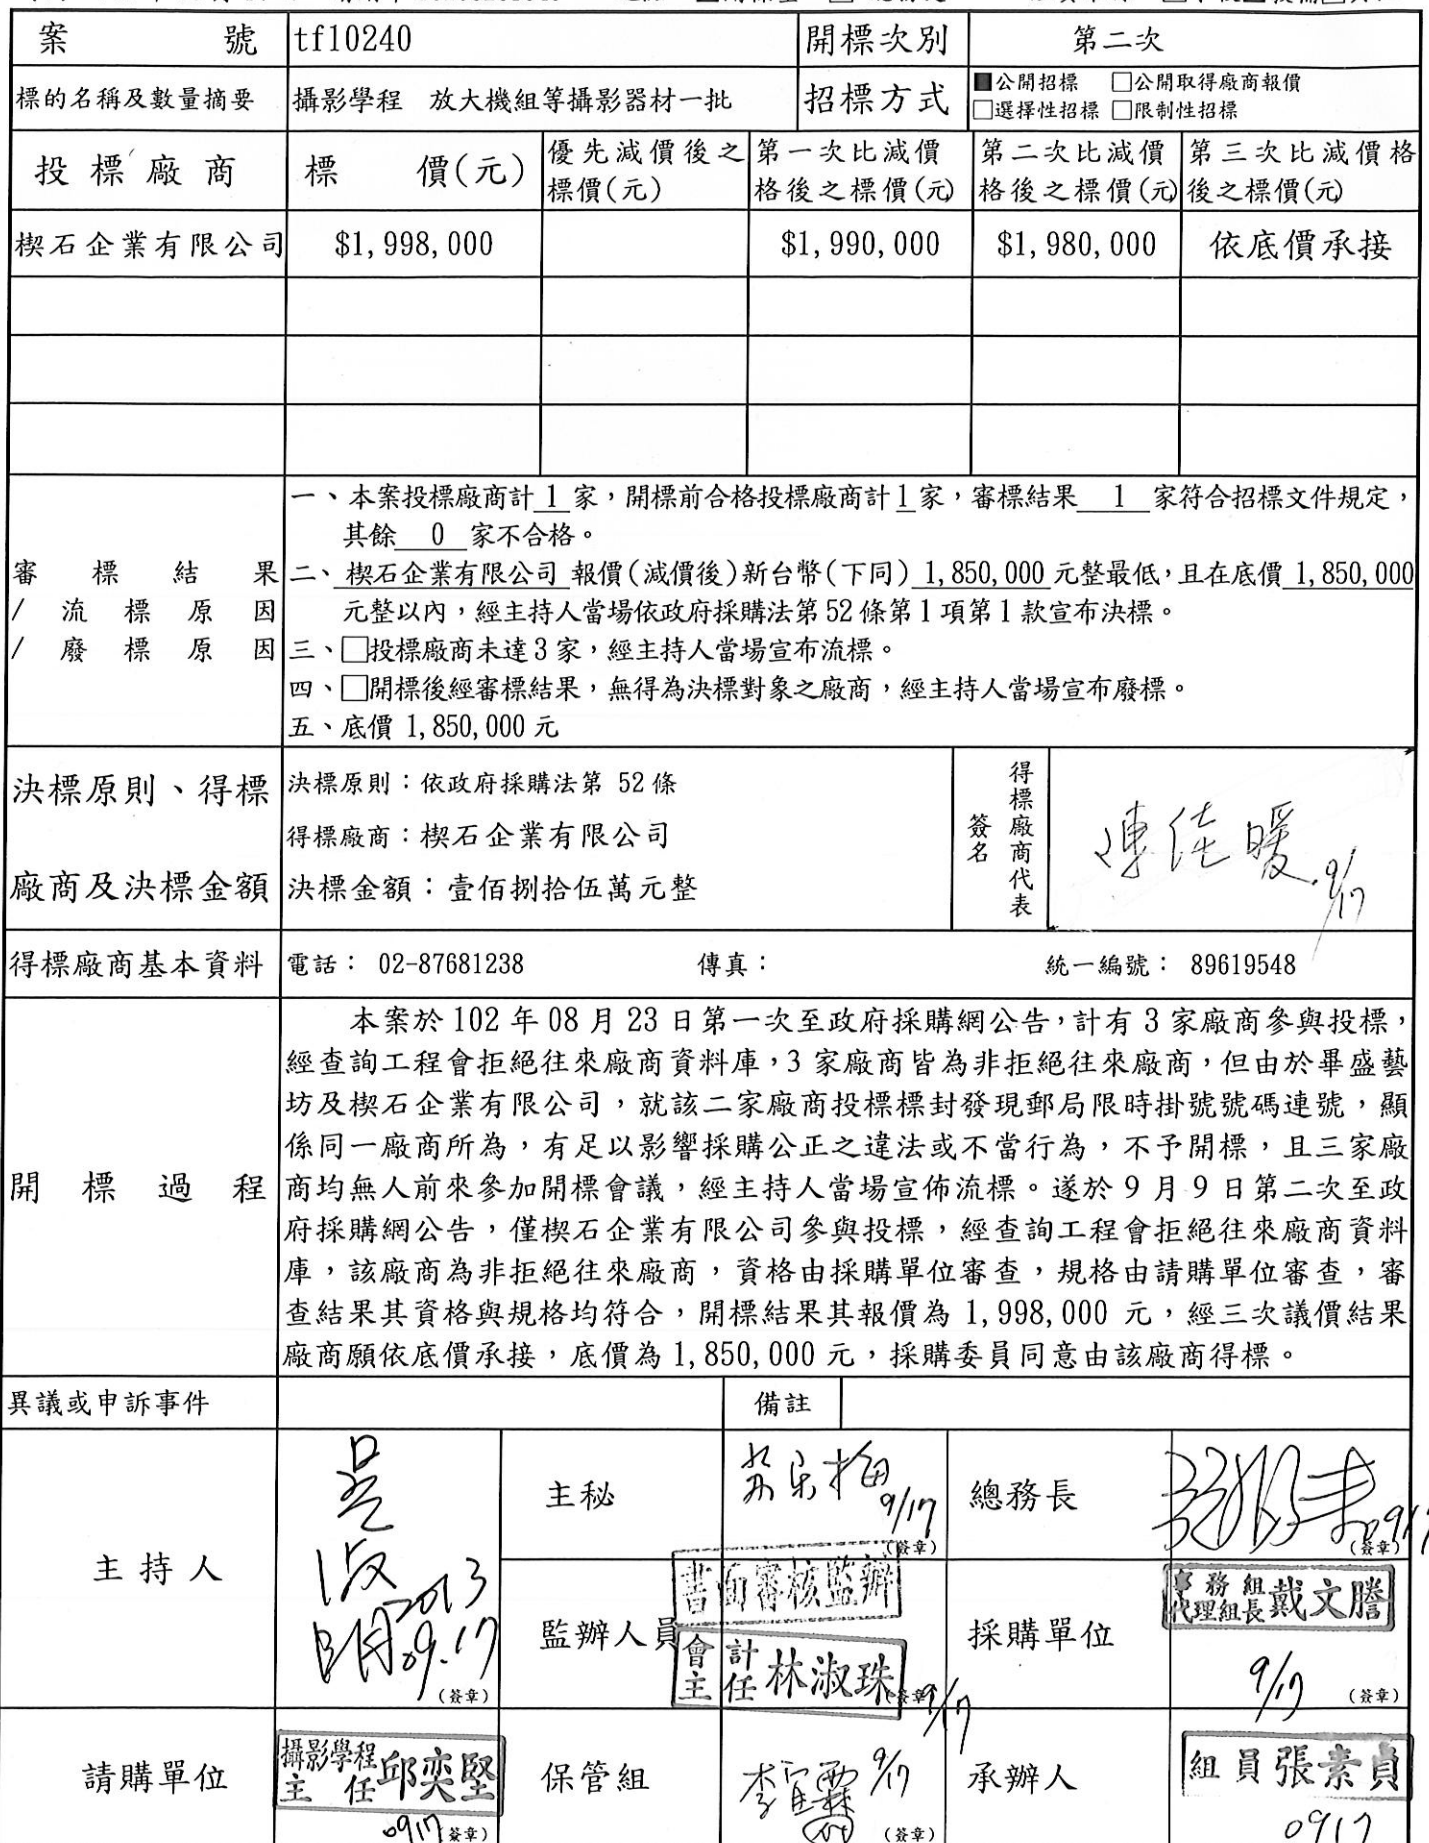 案號 tf10240 開標次別 第二次
標的名稱及數量摘要 攝影學程 放大機組等攝影器材一批 招標方式 ■公開招標 □公開取得廠商報價
□選擇性招標 □限制性招標
投標廠商 標價(元) 優先減價後之標價(元) 第一次比減價格後之標價(元) 第二次比減價格後之標價(元) 第三次比減價格後之標價(元)
楔石企業有限公司 $1,998,000 $1,990,000 $1,980,000 依底價承接
審標結果
/流標原因
/廢標原因
一、本案投標廠商計 1 家，開標前合格投標廠商計 1 家，審標結果 1 家符合招標文件規定，
其餘 0 家不合格。
二、楔石企業有限公司 報價(減價後)新台幣(下同) 1,850,000 元整最低，且在底價 1,850,000
元整以內，經主持人當場依政府採購法第 52 條第 1 項第 1 款宣布決標。
三、□投標廠商未達 3 家，經主持人當場宣布流標。
四、□開標後經審標結果，無得為決標對象之廠商，經主持人當場宣布廢標。
五、底價 1,850,000 元
決標原則、得標
廠商及決標金額
決標原則：依政府採購法第 52 條
得標廠商：楔石企業有限公司
決標金額：壹佰捌拾伍萬元整
得標廠商代表
簽名
連佳暖 9/17
得標廠商基本資料 電話： 02-87681238 傳真： 統一編號： 89619548
開標過程
本案於 102 年 08 月 23 日第一次至政府採購網公告，計有 3 家廠商參與投標，
經查詢工程會拒絕往來廠商資料庫，3 家廠商皆為非拒絕往來廠商，但由於畢盛藝
坊及楔石企業有限公司，就該二家廠商投標標封發現郵局限時掛號號碼連號，顯
係同一廠商所為，有足以影響採購公正之違法或不當行為，不予開標，且三家廠
商均無人前來參加開標會議，經主持人當場宣佈流標。遂於 9 月 9 日第二次至政
府採購網公告，僅楔石企業有限公司參與投標，經查詢工程會拒絕往來廠商資料
庫，該廠商為非拒絕往來廠商，資格由採購單位審查，規格由請購單位審查，審
查結果其資格與規格均符合，開標結果其報價為 1,998,000 元，經三次議價結果
廠商願依底價承接，底價為 1,850,000 元，採購委員同意由該廠商得標。
異議或申訴事件 備註
主持人 吳淑明 2013.09.17 (簽章)
主秘 9/17 (簽章)
總務長 0917 (簽章)
監辦人員 書面審核監辦
會計主任 林淑珠 9/17 (簽章)
採購單位 事務組代理組長 戴文謄 9/17 (簽章)
請購單位 攝影學程主任 邱奕堅 0917 (簽章)
保管組 9/17 (簽章)
承辦人 組員 張素貞 0917